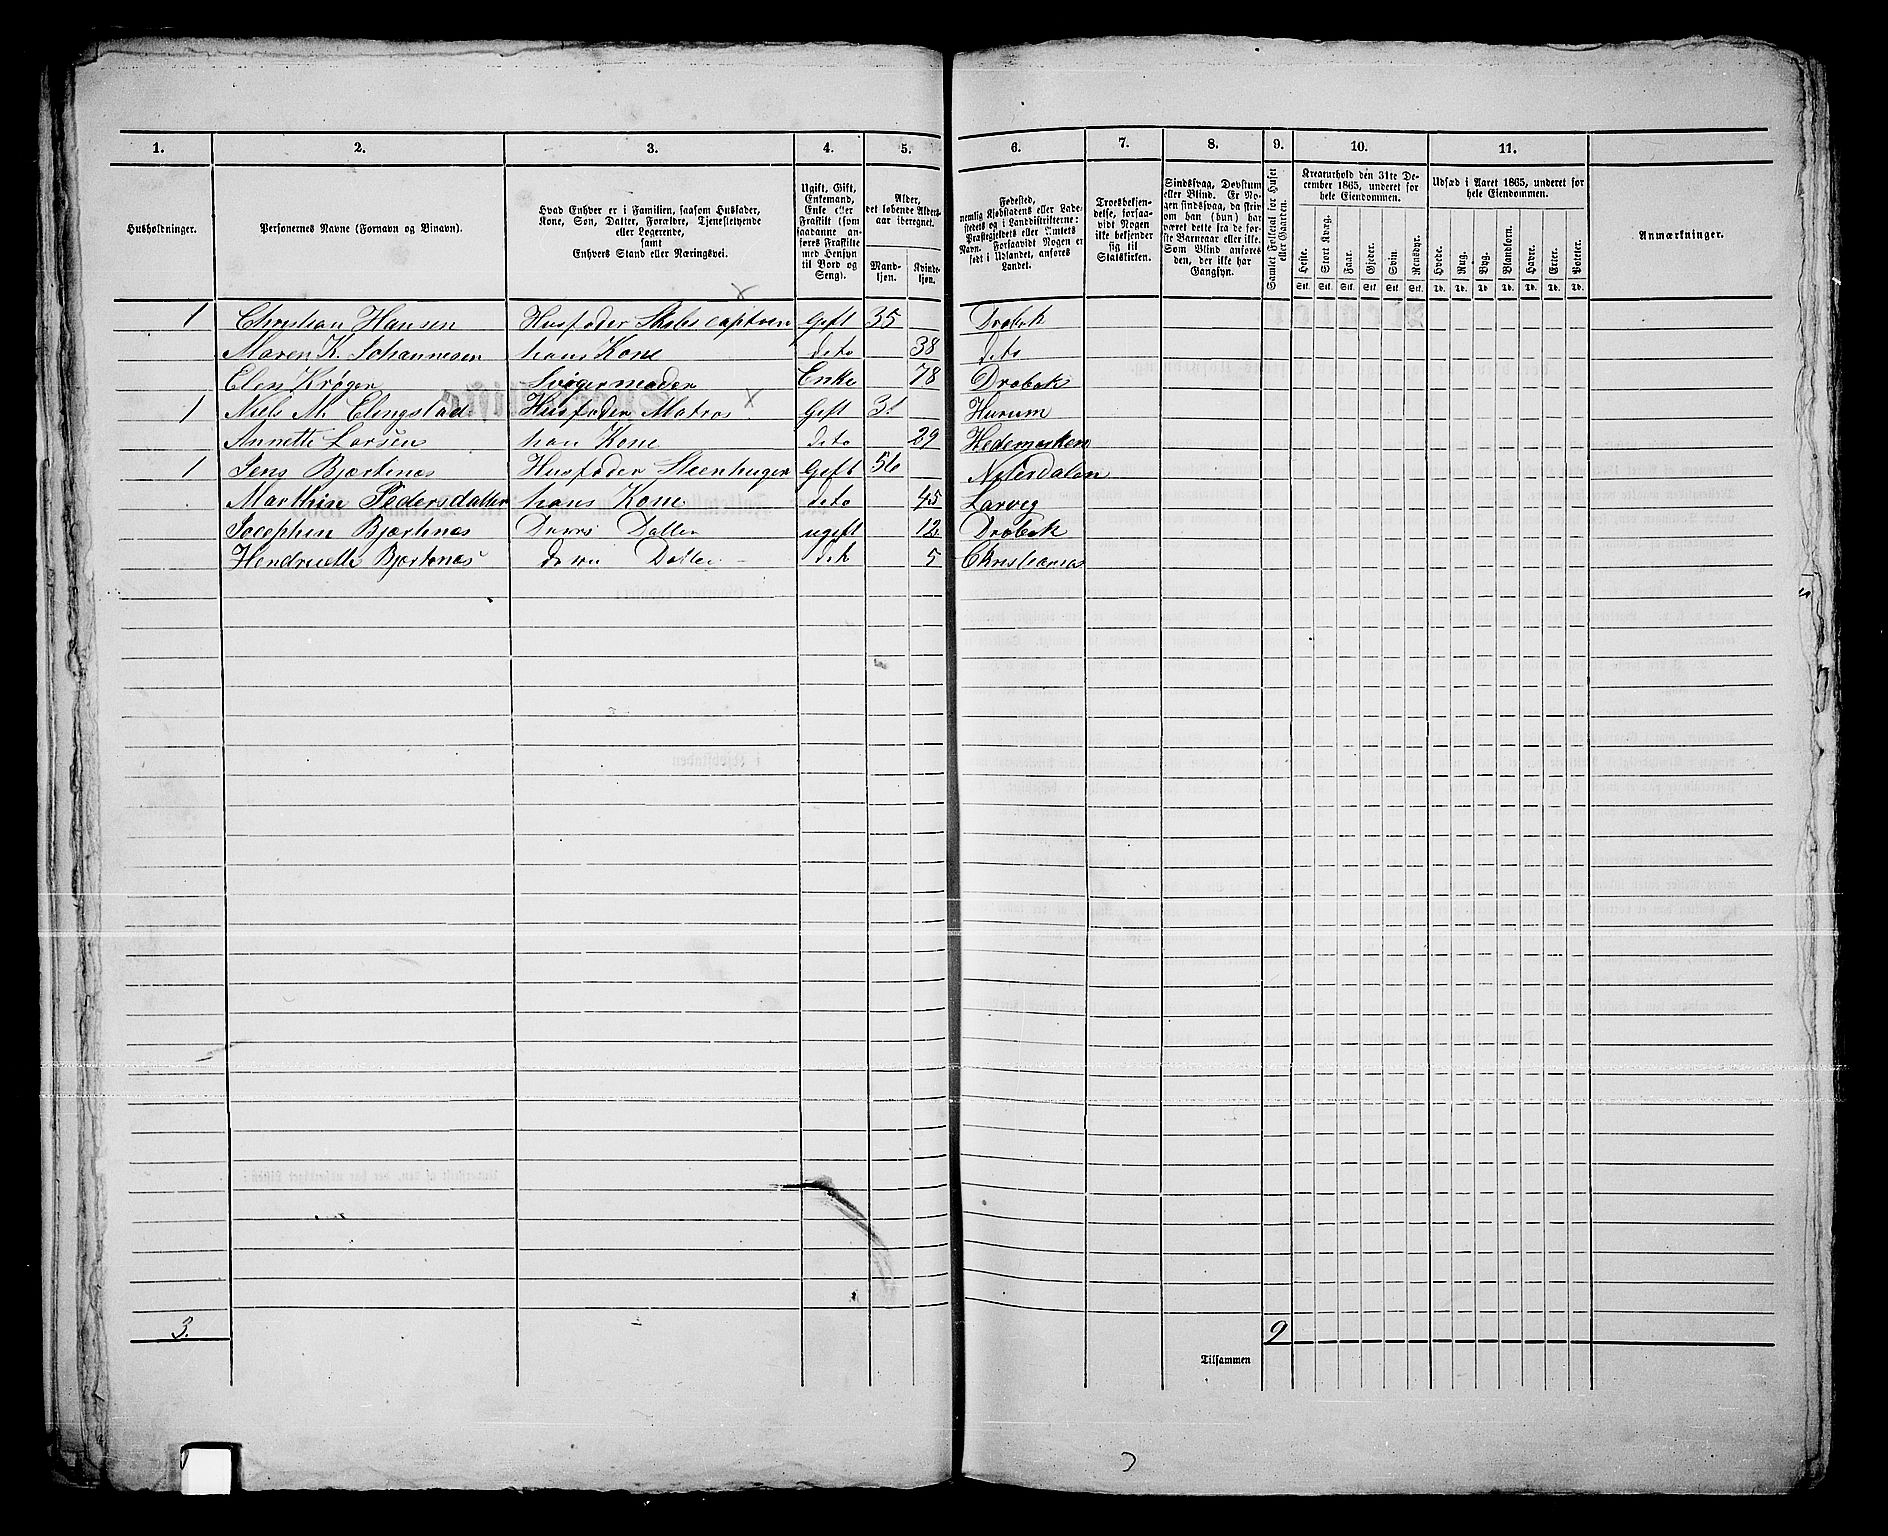 1. 2. 3. 4. 5. 6. 7. 8. 9. 10. 11.
Husholdninger.
Personernes Navne (Fornavn og Binavn).
Hvad Enhver er i Familien, saasom Husfader,
Kone, Søn, Datter, Forældre, Tjenestetyende
eller Logerende,
samt
Enhvers Stand eller Næringsvei.
Ugift, Gift,
Enkemand,
Enke eller
Fraskilt (som
saadanne an-
føres Fraskilte
med Hensyn
til Bord og
Seng).
Alder,
det løbende Alders-
aar iberegnet.
Mand-
kjøn.
Kvinde-
kjøn.
Fødested,
nemlig Kjøbstadens eller Lade-
stedets og i Landdistrikterne:
Præstegjeldets eller Amtets
Navn. Forsaavidt Nogen er
født i Udlandet, anføres
Landet.
Troesbekjen-
delse, forsaa-
vidt Nogen
ikke bekjender
sig til
Statskirken.
Sindssvag, Døvstum
eller Blind. Er No-
gen sindssvag, da skriv
om han (hun) har
været dette fra de før-
ste Barneaar eller ikke.
Som Blind anføres
den, der ikke har
Gangsyn.
Samlet Folketal for Huset
eller Gaarden.
Kreaturhold den 31te De-
cember 1865, underet for
hele Eiendommen.
Heste. Stort Kvæg. Faar. Gjeder. Svin. Rensdyr.
Stk. Stk. Stk. Stk. Stk. Stk.
Udsæd i Aaret 1865, underet for
hele Eiendommen.
Hvede. Rug. Byg. Blandkorn. Havre. Erter. Poteter.
Td. Td. Td. Td. Td. Td. Td.
Anmærkninger.
1 Christian Hansen Husfader Skibscaptein Gift 35 Drøbak
Maren K. Johannesen hans Kone deto 38 deto
Elen Krøger Svigermoder Enke 78 Drøbak
1 Niels M. Elengstad Husfader Matros Gift 31 Hurum
Annette Larsen han Kone deto 29 Hedemarken
1 Jens Bjærtenæs Husfader Gift 56
Marthin Pedersdatter hans Kone deto 45 Larvig
Josephin Bjærtenæs Deres Datter ugift 12 Drøbak
Bjertenæs Datter det 5 Christiania
3. 9
Tilsammen